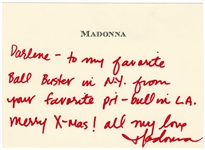 MADONNA
Darlene - to my favorite
Ball Buster in N.Y. from
your favorite pit-bull in L.A.
Merry X-mas! all my love
Madonna